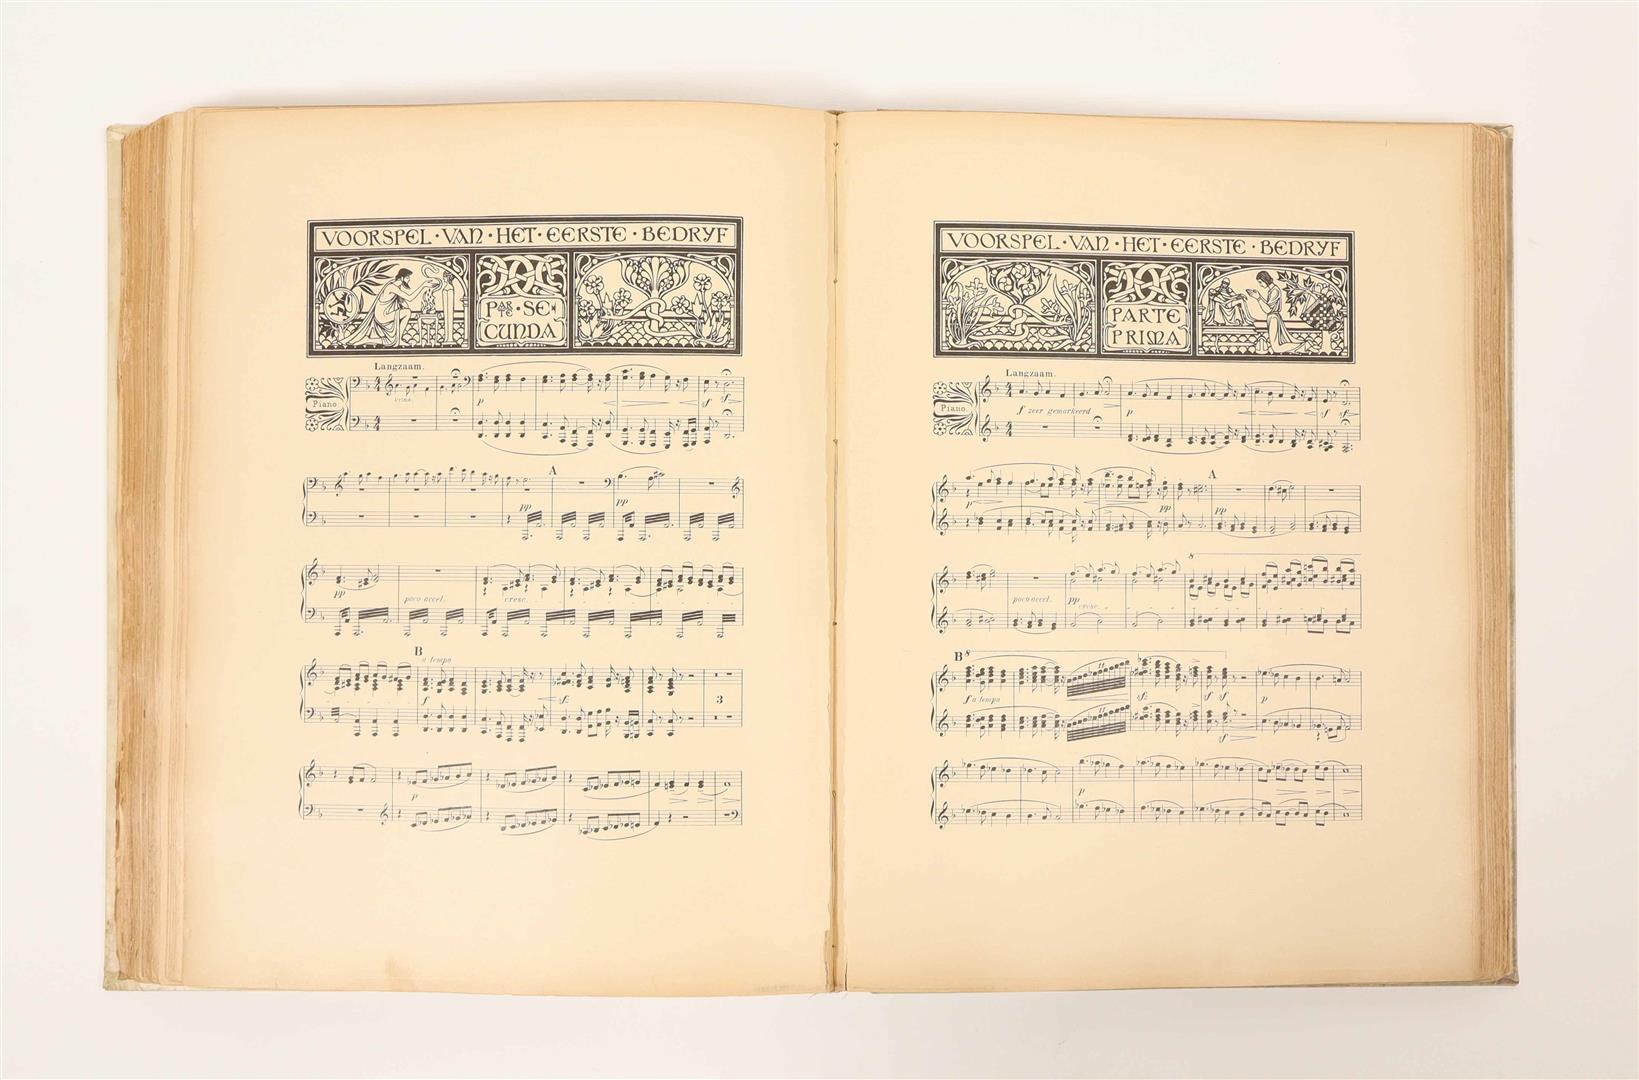 VOORSPEL · VAN · HET · EERSTE · BEDRYF
PARTE · SE
CUNDA
Langzaam.
Piano
primo.
p
sf
sf
A
pp
pp
pp
poco accel.
cresc.
B
a tempo
f
sf
3
p
VOORSPEL · VAN · HET · EERSTE · BEDRYF
PARTE
PRIMA
Langzaam.
Piano
f zeer gemarkeerd
p
sf
sf
A
p
pp
pp
8
poco accel.
pp
cresc.
B
8
11
11
f a tempo
sf
sf
p
sf
p